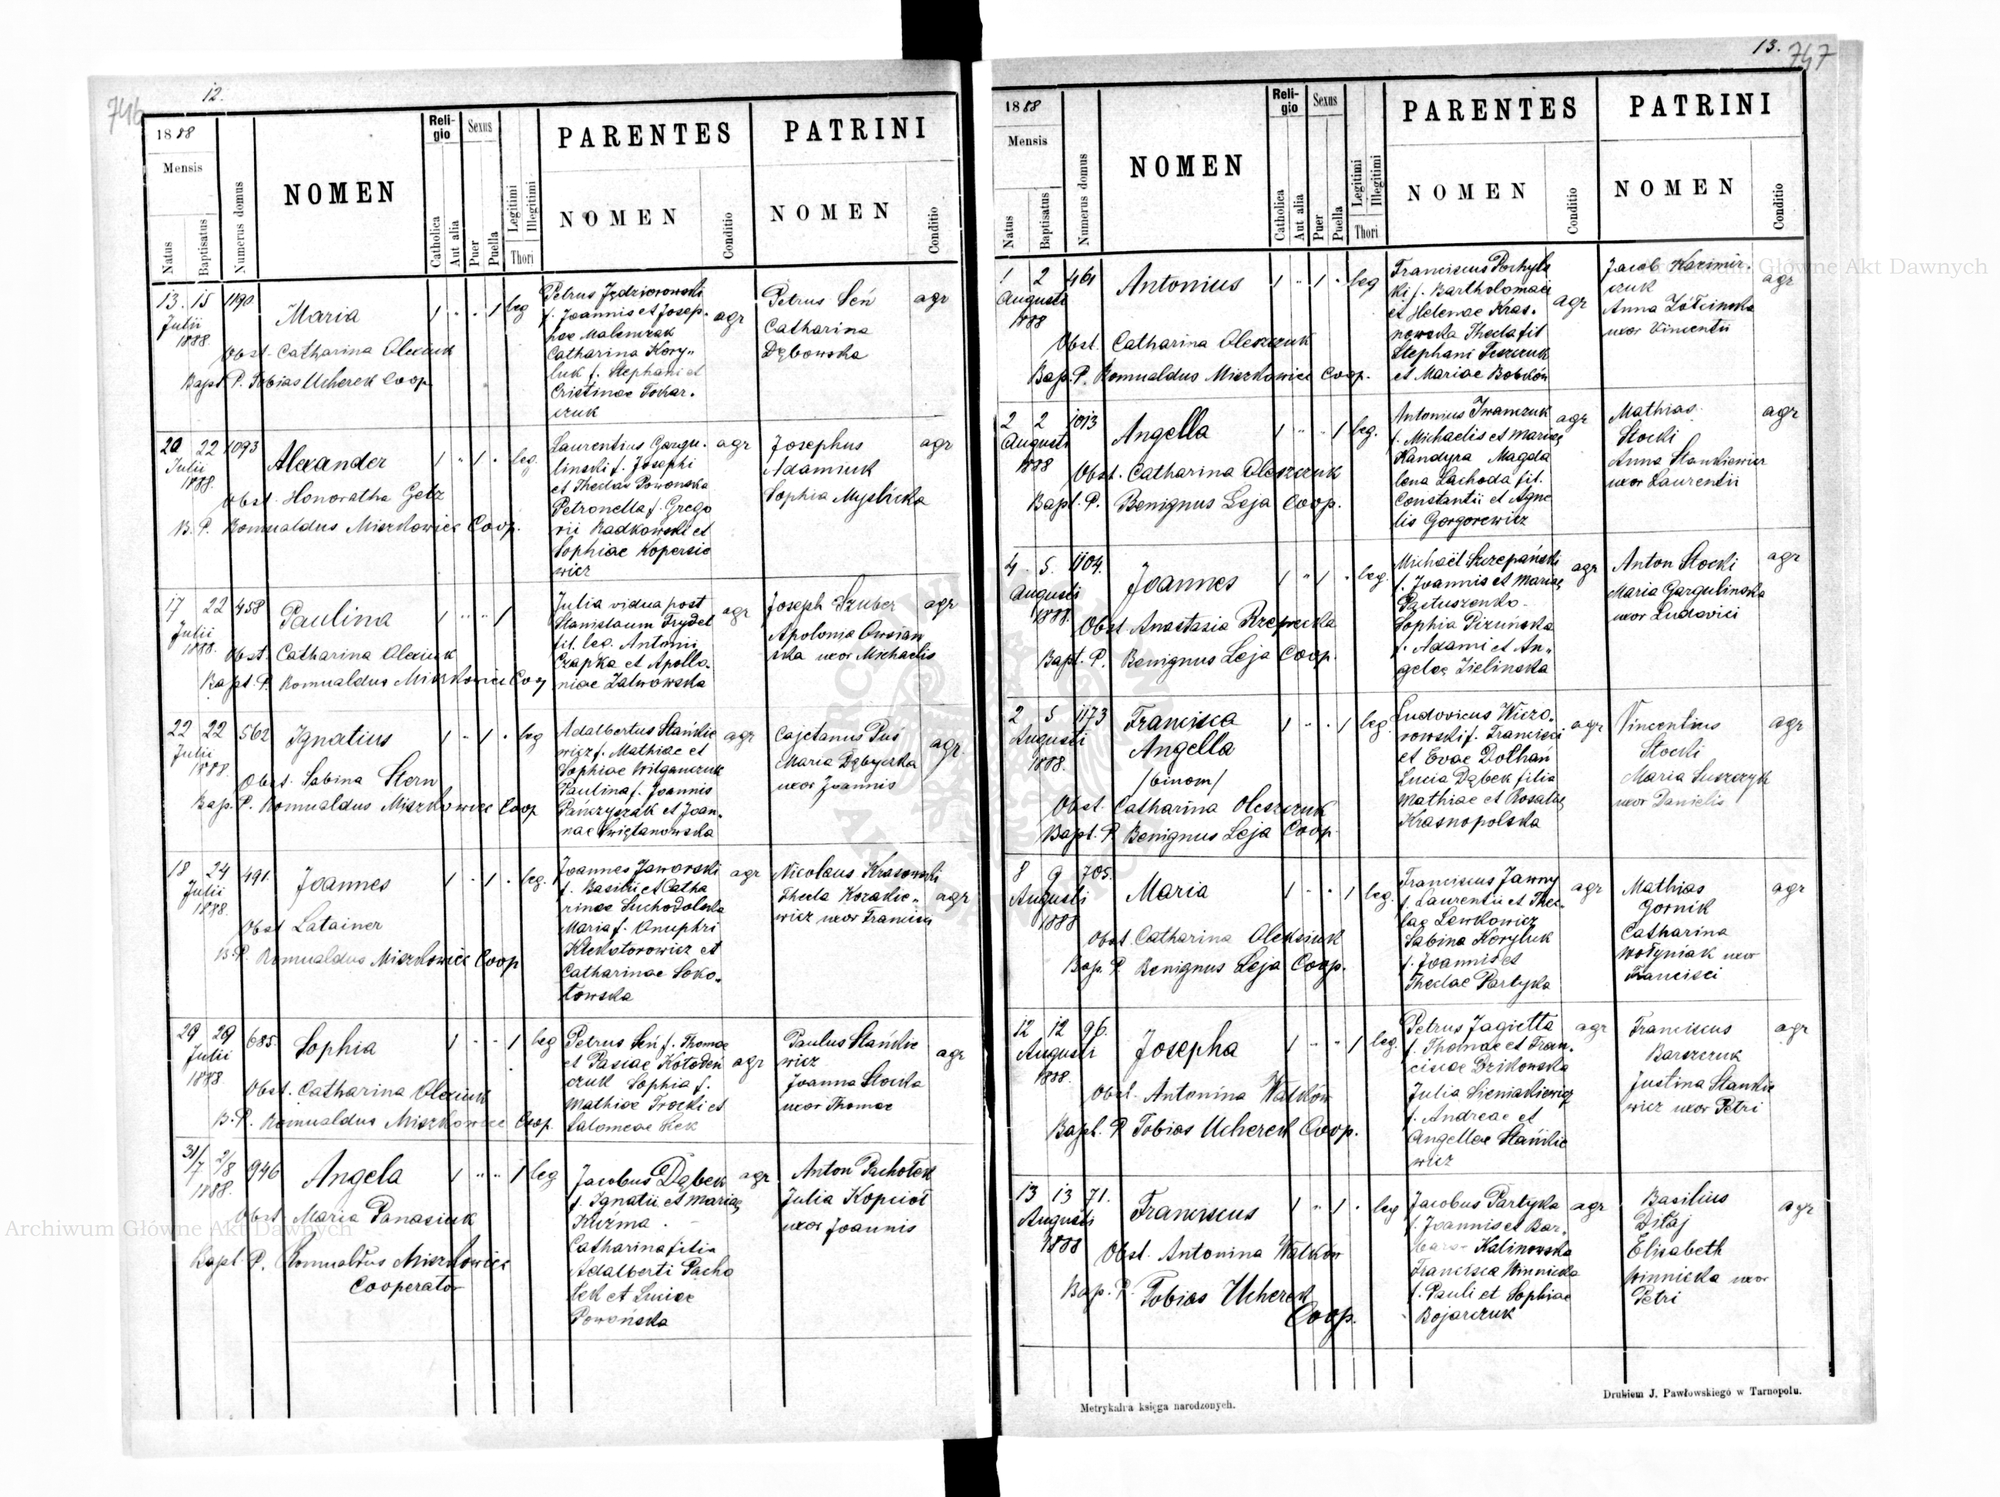 746
12.
1888
Mensis
Natus
Baptisatus
Numerus domus
NOMEN
Religio
Catholica
Aut alia
Sexus
Puer
Puella
Legitimi
Illegitimi
Thori
PARENTES
NOMEN
Conditio
PATRINI
NOMEN
Conditio
13. 15 1190 Maria 1 " " 1 leg
Julii
1888.
Obst. Catharina Olexiuk
Bapt. P. Tobias Ucherek Coop.
Petrus Jędziorowski
f. Joannis et Josep-
hae Malenczak
Catharina Kory-
luk f. Stephani et
Cristinae Tokar-
czuk
agr
Petrus Seń
Catharina
Dębowska
agr
20 22 1093 Alexander 1 " 1 " leg.
Julii
1888.
Obst. Honoratha Getz
B. P. Romualdus Miszkowicz Coop.
Laurentius Gargu-
linski f. Josephi
et Theclae Powonska
Petronella f. Grego
rii Radkowski et
Sophiae Kopersie
wicz
agr
Josephus
Adamiuk
Sophia Myslicka
agr
17 22 458 Paulina 1 " " 1
Julii
1888.
Obst. Catharina Olexiuk
Bapt. P. Romualdus Miszkowicz Coop
Julia vidua post
Stanislaum Frydel
fil. leg. Antonii
Czapka et Apollo-
niae Zalwowska
agr
Joseph Szuber
Apolonia Owsian
ska uxor Michaelis
agr
22 22 562 Ignatius 1 " 1 " leg
Julii
1888.
Obst. Sabina Stern
Bap. P. Romualdus Miszkowicz Coop
Adalbertus Stańkie
wicz f. Mathiae et
Sophiae Wilganczuk
Paulina f. Joannis
Pańczyszak et Joan-
nae Swiętanowska
agr
Cajetanus Puś
Maria Dębycka
uxor Joannis
agr.
18 24 491. Joannes 1 " 1 " leg.
Julii
1888.
Obst Latainer
B. P. Romualdus Miszkowicz Coop
Joannes Jaworski
f. Basilii et Catha
rinae Suchodolska
Maria f. Onuphri
Klekotorowicz et
Catharinae Soko-
łowska
agr
Nicolaus Krasowski
Thecla Kozakie-
wicz uxor Francisci
agr
29 29 685. Sophia 1 " " 1 leg
Julii
1888.
Obst. Catharina Olexiuk
B. P. Romualdus Miszkowicz Coop.
Petrus Seń f. Thomae
et Pasiae Kołoden
czuk Sophia f.
Mathiae Trocki et
Salomeae Sek
agr
Paulus Stańkie
wicz
Joanna Stocka
uxor Thomae
agr
31/7 2/8 946 Angela 1 " " 1 leg
1888.
Obst. Maria Panasiuk
Bapt. P. Romualdus Miszkowicz
Cooperator
Jacobus Dąbek
f. Ignatii et Mariae
Kuźma.
Catharina filia
Adalberti Pacho
łek et Luciae
Powońska
agr
Anton Pachołek
Julia Kopcioł
uxor Joannis
agr
13.
747
1888
Mensis
Natus
Baptisatus
Numerus domus
NOMEN
Religio
Catholica
Aut alia
Sexus
Puer
Puella
Legitimi
Illegitimi
Thori
PARENTES
NOMEN
Conditio
PATRINI
NOMEN
Conditio
1 2 461 Antonius 1 " 1 " leg
Augusti
1888
Obst. Catharina Oleszczuk
Bap. P. Romualdus Miszkowicz Coop.
Franciscus Pochyls
ki f. Bartholomaei
et Helenae Kras-
nowska Thecla fil
Stephani Teszczuk
et Mariae Bobków
agr
Jacob Kazimir-
czuk
Anna Żółcinska
uxor Vincentii
agr
2 2 1013 Angella 1 " " 1 leg.
Augusti
1888
Obst. Catharina Oleszczuk
Bapt. P. Benignus Leja Coop.
Antonius Iwanczuk
f. Michaelis et Mariae
Handyra Magda
lena Lachoda fil.
Constantii et Agne
lis Gorgorewicz
agr
Mathias
Stocki
Anna Stankiewicz
uxor Laurentii
agr
4. 5. 1104. Joannes 1 " 1 " leg.
Augusti
1888.
Obst Anastasia Rzepecka
Bapt. P. Benignus Leja Coop.
Michaël Szczepański
f. Joannis et Mariae
Pastuszenko.
Sophia Pizuńska
f. Adami et An-
gelae Zielinska
agr
Anton Stocki
Maria Gargulinska
uxor Ludovici
agr
2 5 1173 Francisca 1 " " 1 leg
Augusti
1888.
Angella
/binom/
Obst. Catharina Oleszczuk
Bapt. P Benignus Leja Coop.
Ludovicus Wizo-
rowski f. Francisci
et Evae Dołhań
Lucia Dąbek filia
Mathiae et Rosaliae
Krasnopolska
agr
Vincentius
Stocki
Maria Suszczyk
uxor Danielis
agr
8 9 705. Maria 1 " " 1 leg.
Augusti
1888
Obst. Catharina Oleksiuk
Bap. P Benignus Leja Coop.
Franciscus Jawny
f. Laurentii et Thec
lae Lewkowicz
Sabina Koryluk
f. Joannis et
Theclae Partyka
agr
Mathias
Gornik
Catharina
Wołyniak uxor
Francisci
agr
12 12 96. Josepha 1 " " 1 leg.
Augusti
1888.
Obst. Antonina Walków
Bapt. P Tobias Ucherek Coop.
Petrus Jagiełła
f. Thomae et Fran-
ciscae Dzikowska
Julia Sieniakiewicz
f. Andreae et
Angellae Stańkie
wicz
agr
Franciscus
Barszczuk
Justina Stankie
wicz uxor Petri
agr
13 13 71. Franciscus 1 " 1 " leg
Augusti
1888
Obst. Antonina Walków
Bap. P. Tobias Ucherek
Coop.
Jacobus Partyka
f. Joannis et Bar-
barae Kalinowska
Francisca Winnicka
f. Pauli et Sophiae
Bojarczuk
agr
Basilius
Diłaj
Elisabeth
Winnicka uxor
Petri
agr
Metrykalna księga narodzonych.
Drukiem J. Pawłowskiego w Tarnopolu.
Archiwum Główne Akt Dawnych
Archiwum Główne Akt Dawnych